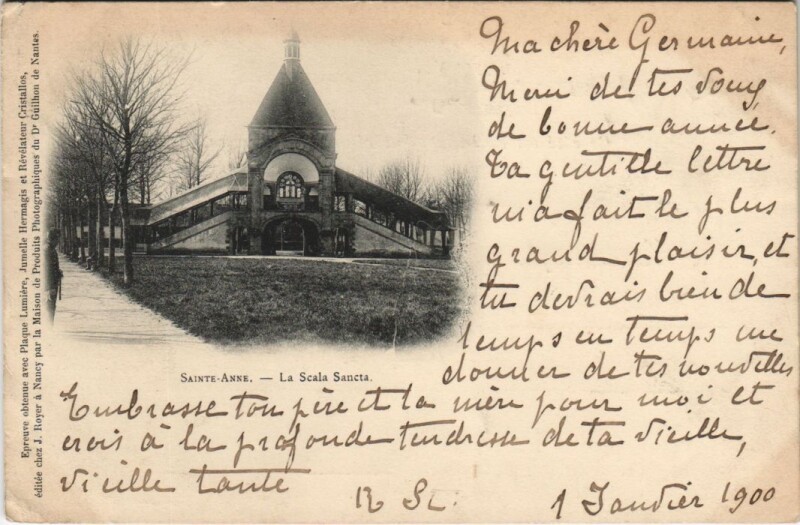 Epreuve obtenue avec Plaque Lumière, Jumelle Hermagis et Révélateur Cristallos,
éditée chez J. Royer à Nancy par la Maison de Produits Photographiques du Dr Guilhon de Nantes.
Ma chère Germaine,
Merci de tes voeux
de bonne année.
Ta gentille lettre
m'a fait le plus
grand plaisir, et
tu devrais bien de
temps en temps me
donner de tes nouvelles
SAINTE-ANNE. — La Scala Sancta.
Embrasse ton père et ta mère pour moi et
crois à la profonde tendresse de ta vieille,
vieille tante
R St.
1 Janvier 1900